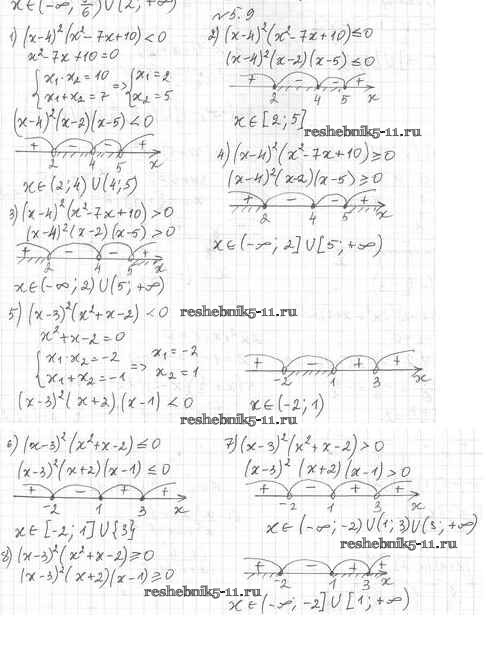 x∈(-∞; 7/6)∪(2; +∞)
№5.9
1) (x-4)²(x²-7x+10)<0
x²-7x+10=0
{x₁·x₂=10 => {x₁=2
{x₁+x₂=7 {x₂=5
(x-4)²(x-2)(x-5)<0
+ - - +
2 4 5 x
x∈(2;4)∪(4;5)
2) (x-4)²(x²-7x+10)≤0
(x-4)²(x-2)(x-5)≤0
+ - - +
2 4 5 x
x∈[2;5]
reshebnik5-11.ru
3) (x-4)²(x²-7x+10)>0
(x-4)²(x-2)(x-5)>0
+ - - +
2 4 5 x
x∈(-∞;2)∪(5;+∞)
4) (x-4)²(x²-7x+10)≥0
(x-4)²(x-2)(x-5)≥0
+ - - +
2 4 5 x
x∈(-∞;2]∪[5;+∞)
5) (x-3)²(x²+x-2)<0
reshebnik5-11.ru
x²+x-2=0
{x₁·x₂=-2 => x₁=-2
{x₁+x₂=-1 x₂=1
(x-3)²(x+2)(x-1)<0
+ - + +
-2 1 3 x
x∈(-2;1)
reshebnik5-11.ru
6) (x-3)²(x²+x-2)≤0
(x-3)²(x+2)(x-1)≤0
+ - + +
-2 1 3 x
x∈[-2;1]∪{3}
7) (x-3)²(x²+x-2)>0
(x-3)² (x+2)(x-1)>0
+ - + +
-2 1 3 x
x∈(-∞;-2)∪(1;3)∪(3;+∞)
reshebnik5-11.ru
8) (x-3)²(x²+x-2)≥0
(x-3)²(x+2)(x-1)≥0
+ - + +
-2 1 3 x
reshebnik5-11.ru
x∈(-∞;-2]∪[1;+∞)